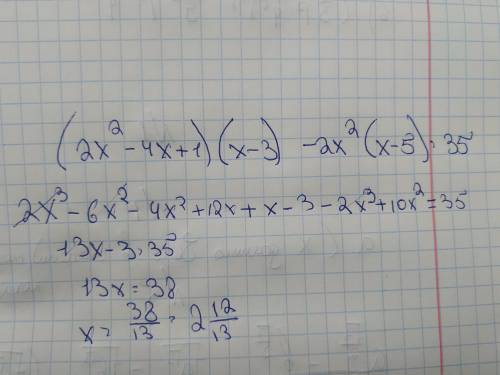 (2x² - 4x + 1)(x - 3) - 2x²(x - 5) = 35
2x³ - 6x² - 4x² + 12x + x - 3 - 2x³ + 10x² = 35
13x - 3 = 35
13x = 38
x = 38/13 = 2 12/13